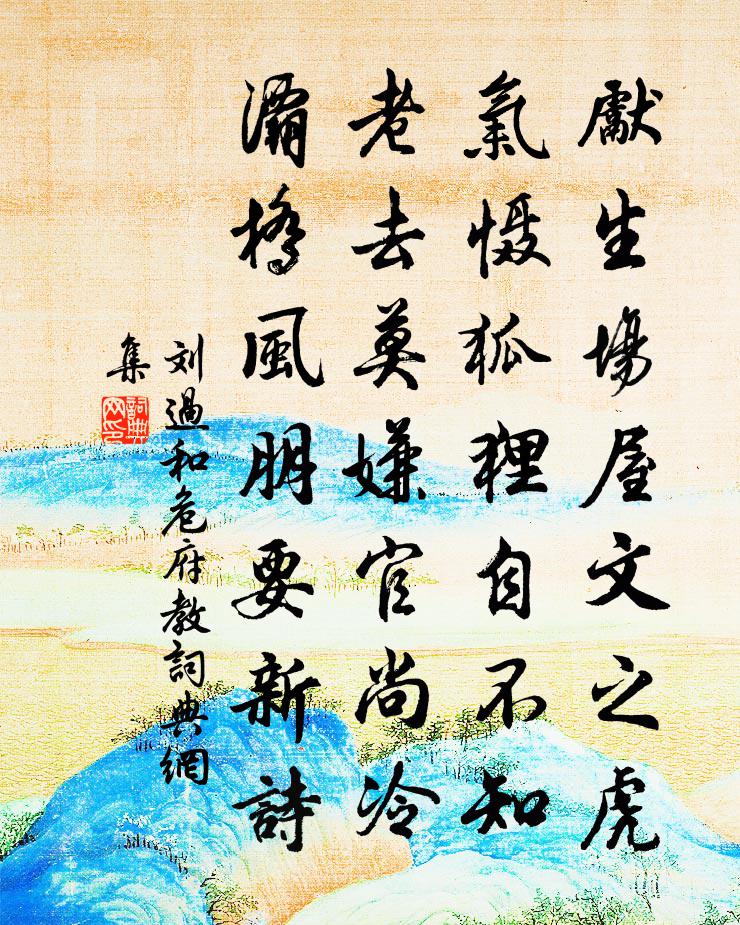 獻生場屋文之虎
氣慑狐狸自不知
老去莫嫌官尚冷
灞橋風朋要新詩
刘過和危府教詞典網
集
詞典
网印